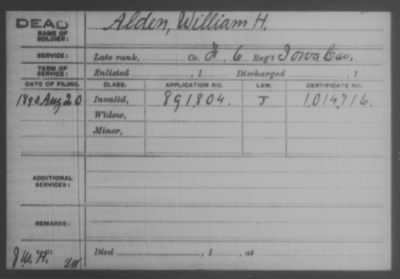 DEAD
NAME OF SOLDIER: Alden, William H.
SERVICE: Late rank, Co. F. 6 Reg't Iowa Cav.
TERM OF SERVICE: Enlisted , 1 Discharged , 1
DATE OF FILING. CLASS. APPLICATION NO. LAW. CERTIFICATE NO.
1890 Aug 20 Invalid, 891804. J 1,014,716.
Widow,
Minor,
ADDITIONAL SERVICES:
REMARKS:
J.W.H. Died , 1 , at